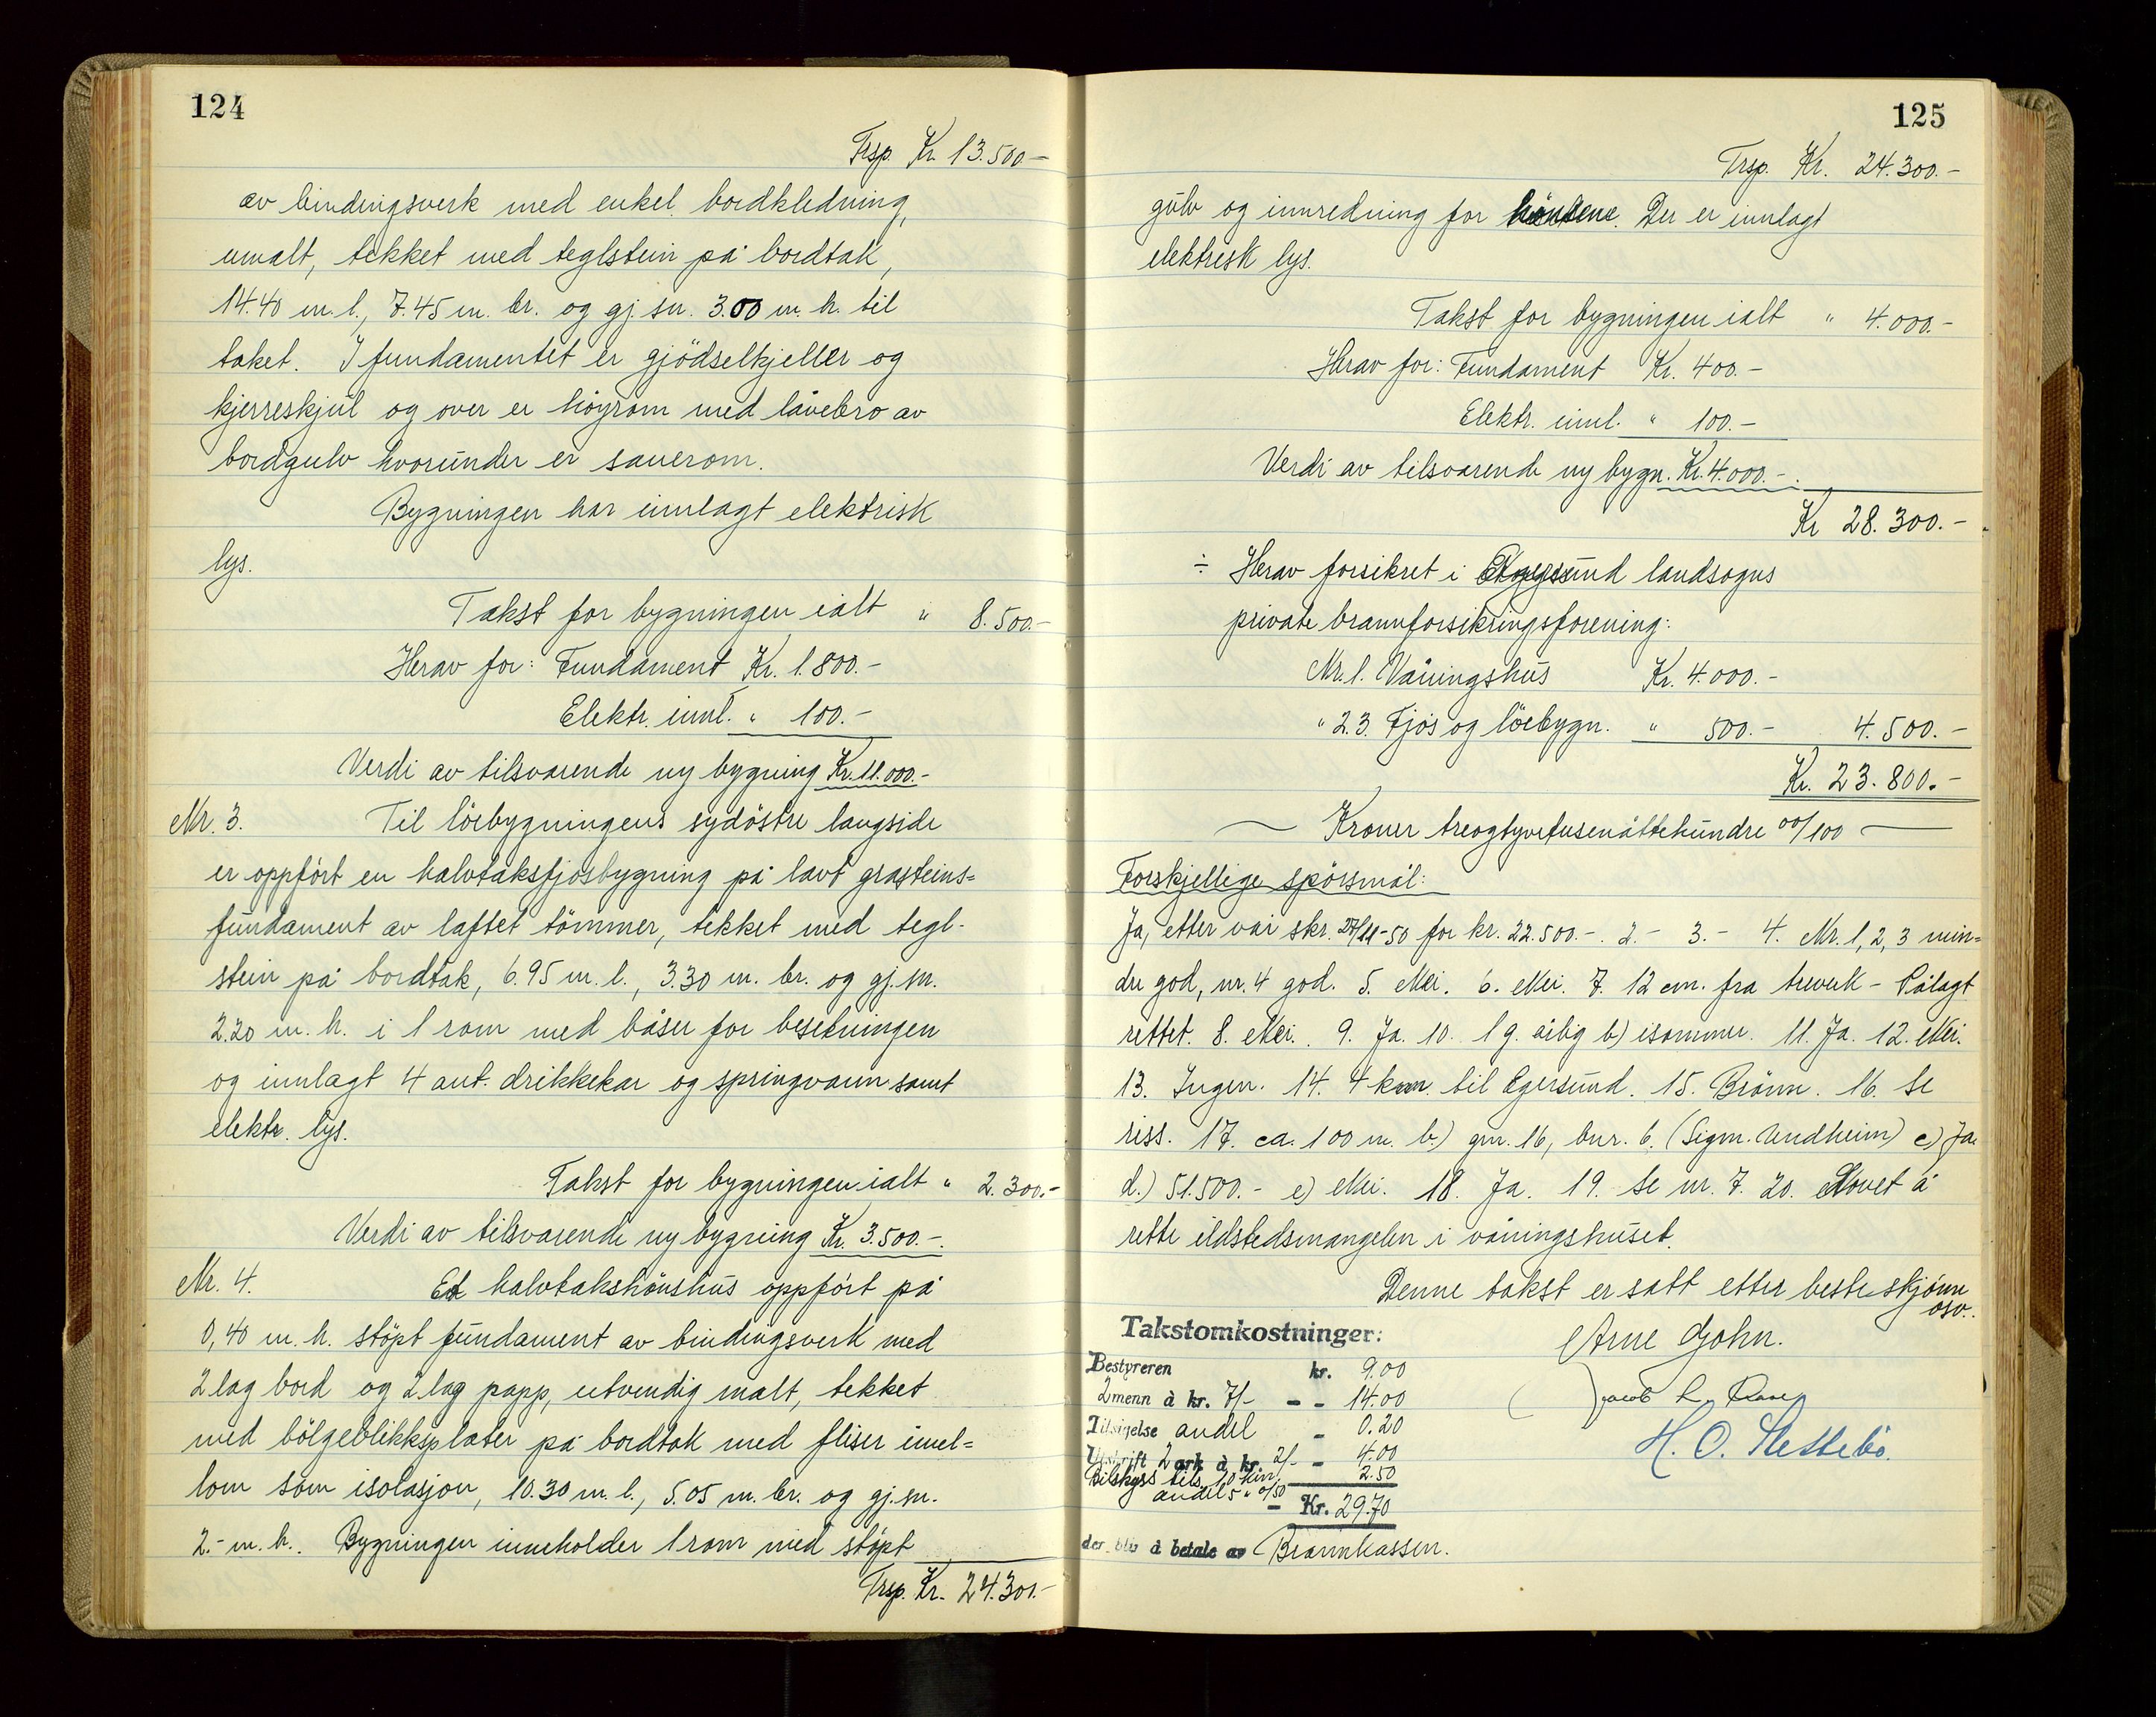 124
Trsp. Kr. 13.500.-
av bindingsverk med enkel bordkledning,
umalt, tekket med teglstein på bordtak,
14.40 m. l., 7.45 m. br. og gj. sn. 3.00 m. h. til
taket. I fundamentet er gjödselkjeller og
kjerreskjul og over er höyrom med låvebro av
bordgulv hvorunder er sauerom.
Bygningen har innlagt elektrisk
lys.
Takst for bygningen ialt " 8.500.-
Herav for: Fundament Kr. 1.800.-
Elektr. innl. " 100.-
Verdi av tilsvarende ny bygning Kr. 11.000.-
Nr. 3. Til löebygningens sydöstre langside
er oppfört en halvtaksfjosbygning på lavt gråsteins=
fundament av laftet tömmer, tekket med tegl-
stein på bordtak, 6.95 m. l., 3.30 m. br. og gj. sn.
2.20 m. h. i 1 rom med båser for besetningen
og innlagt 4 aut. drikkekar og springvann samt
elektr. lys.
Takst for bygningen ialt " 2.300.-
Verdi av tilsvarende ny bygning Kr. 3.500.-.
Nr. 4. Et halvtakshönshus oppfört på
0,40 m. h. stöpt fundament av bindingsverk med
2 lag bord og 2 lag papp, utvendig malt, tekket
med bölgeblikksplater på bordtak med fliser imel=
lom som isolasjon, 10.30 m. l., 5.05 m. br. og gj. sn.
2.- m. h.. Bygningen inneholder 1 rom med stöpt
Trsp. Kr. 24.300.-
125
Trsp. Kr. 24.300.-
gulv og innredning for hönsene. Der er innlagt
elektrisk lys.
Takst for bygningen ialt " 4.000.-
Herav for: Fundament Kr. 400.-
Elektr. innl. " 100.-
Verdi av tilsvarende ny bygn. Kr. 4.000.-.
Kr 28.300.-
÷ Herav forsikret i Egersund landsogns
private brannforsikringsforening:
Nr. 1. Våningshus Kr. 4.000.-
" 2.3. Fjös og löebygn. " 500.- 4.500.-
Kr. 23.800.-
Kroner treogtyvetusenåttehundre 00/100
Forskjellige spörsmål:
Ja, etter vår skr. 27/11-50 for kr. 22.500.-. 2.- 3.- 4. Nr. 1, 2, 3 min=
dre god, nr. 4 god. 5. Nei. 6. Nei. 7. 12 cm. fra treverk - Pålagt
rettet. 8. Nei. 9. Ja. 10. 1 g. årlig b) isommer. 11. Ja. 12. Nei.
13. Ingen. 14. 4 km til Egersund. 15. Brönn. 16. Se
riss. 17. ca. 100 m. b.) gnr. 16, bnr. 6. (Sigm. Undheim) c) Ja
d.) 51.500.- e) Nei. 18. Ja. 19. Se nr. 7. 20. Lovet å
rette ildstedsmangelen i våningshuset.
Denne takst er satt etter beste skjönn
osv..
Takstomkostninger:
Arne Gjohn.
Bestyreren kr. 9.00
2 menn à kr. 7/- - - 14.00
Jacob L.
Tilsigelse andel - 0.20
H. O. Hestebö.
Utskrift 2 ark à kr. 2/- - 4.00
Bilskyss tils. 10 km 2.50
andel 5 " 0/50
- Kr. 29.70
der blir å betale av Brannkassen.